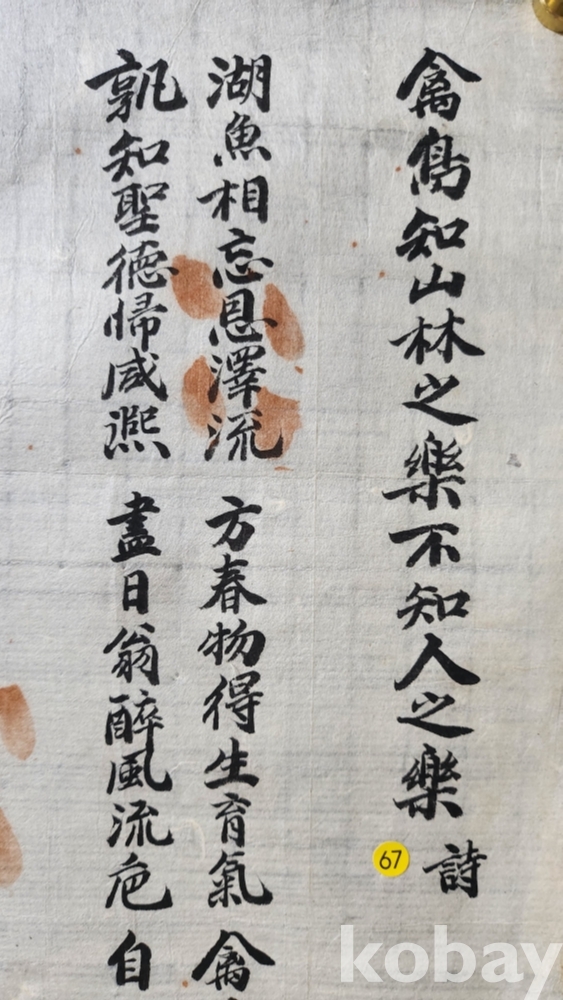 禽鳥知山林之樂不知人之樂 詩
湖魚相忘恩澤流 方春物得生育氣 禽
孰知聖德帰咸熙 盡日翁醉風流巵 自
67
kobay